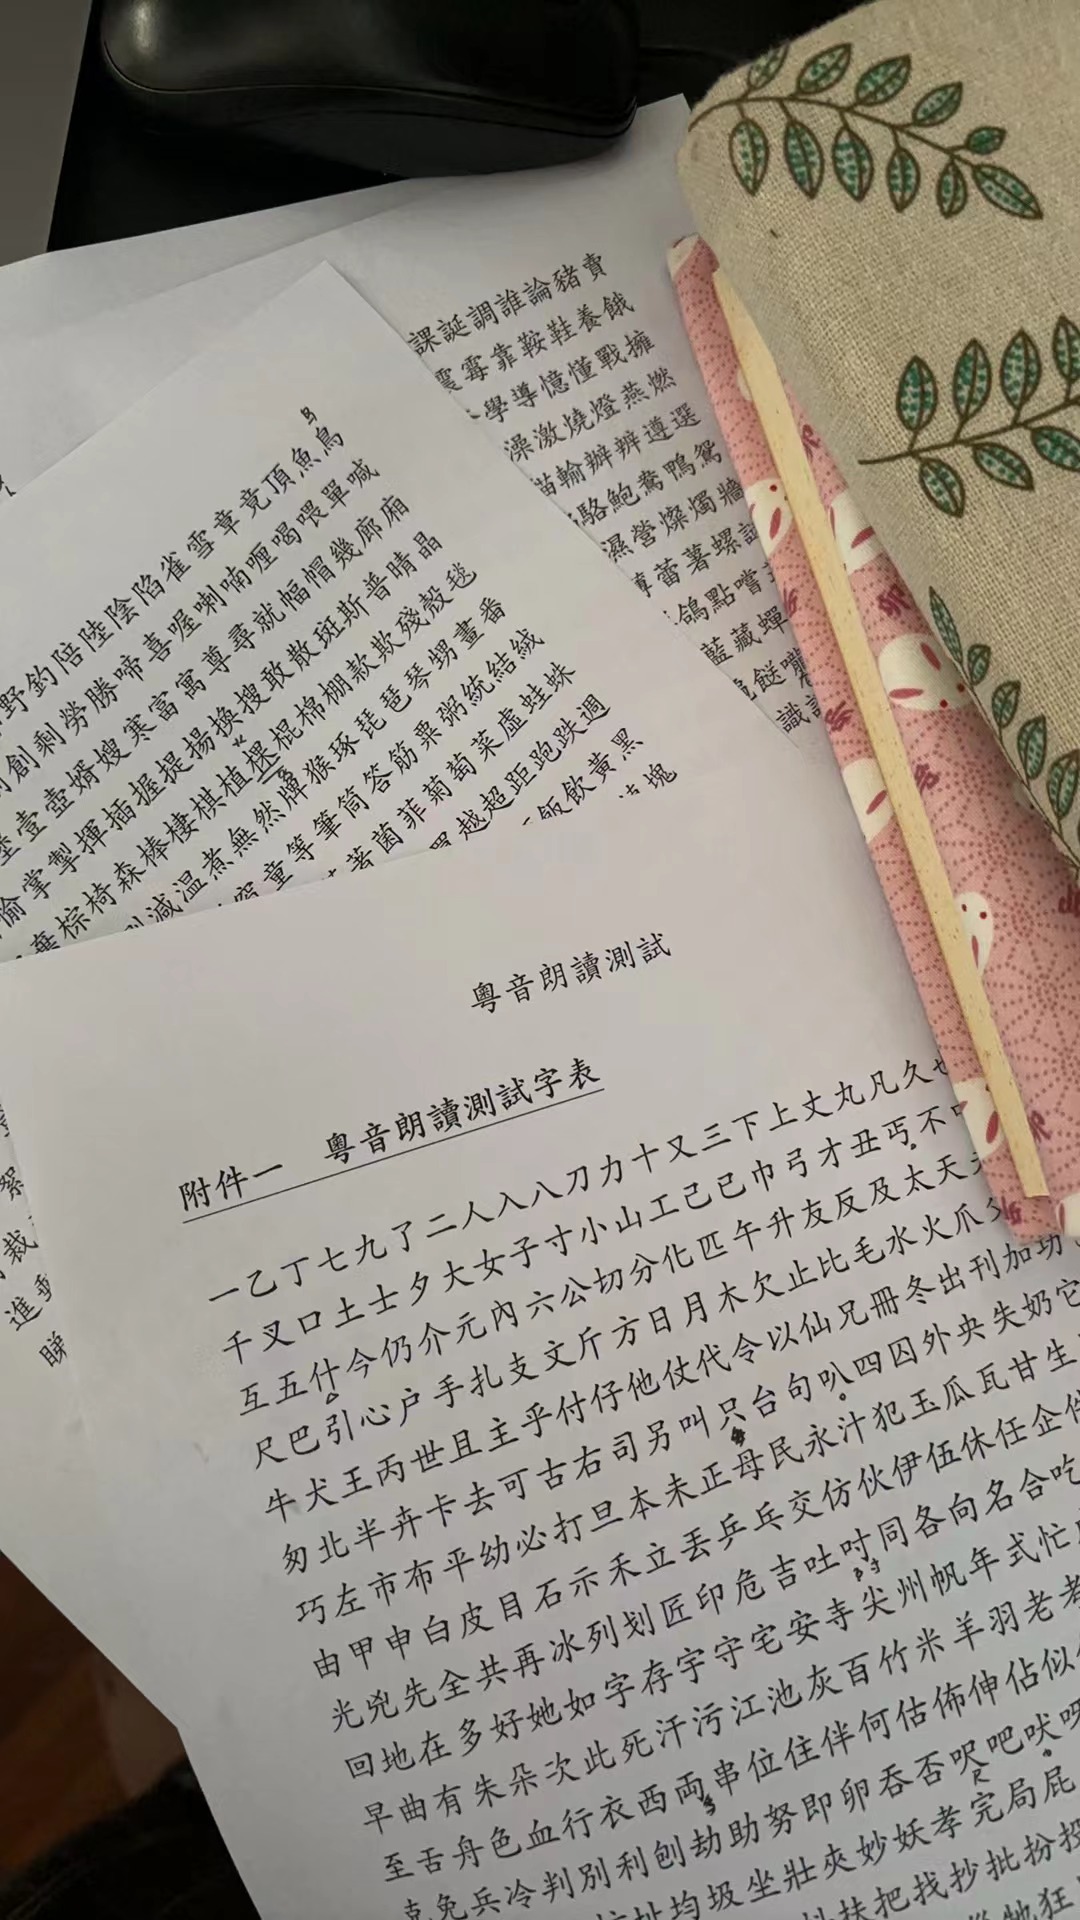 課誕調誰論豬賣
震霉靠鞍鞋養餓
學導憶懂戰擁
澡激燒燈燕燃
貓輸辦辨遵選
駱鮑鴦鴨鴛
濕營燦燭牆
薄蕾薯螺
鴿點嚐
藍藏蟬
餸嘴
識
野釣陪陸陰陷雀雪章竟頂魚鳥
創剩勞勝啼喜喔喇喃喱喝喂單喊
堡壹壺婿嫂寒富寓尊尋就幅帽幾廊廂
偷掌掣揮插握提揚換搜敢散斑斯普晴晶
棄棕椅森棒棲棋植棵棍棉棚款欺殘殼毯
減溫煮無然牌猴琢琵琶琴甥畫番
窗童等筆筒答筋粟粥統結絨
著菌菲菊萄菜虛蛙蛛
越超距跑跌週
飯飲黃黑
塊
絮
裁
進
睇
粵音朗讀測試
附件一 粵音朗讀測試字表
一乙丁七九了二人入八刀力十又三下上丈丸凡久也
千叉口土士夕大女子寸小山工己已巾弓才丑丐不中
互五什今仍介元內六公切分化匹午升友反及太天
尺巴引心户手扎支文斤方日月木欠止比毛水火爪父
牛犬王丙世且主乎付仔他仗代令以仙兄冊冬出刊加功
匆北半卉卡去可古右司另叫只台句叭四囚外央失奶它
巧左市布平幼必打旦本未正母民永汁犯玉瓜瓦甘生
由甲申白皮目石示禾立丟乒乓交仿伙伊伍休任企件
光兇先全共再冰列划匠印危吉吐吋同各向名合吃
回地在多好她如字存宇守宅安寺尖州帆年式忙
早曲有朱朵次此死汗污江池灰百竹米羊羽老考
至舌舟色血行衣西両串位住伴何估佈伸佔似
克免兵冷判別利刨劫助努即卵吞否呎吧吠呀
均圾坐壯夾妙妖孝完局屁
扶把找抄批扮投
牠狂